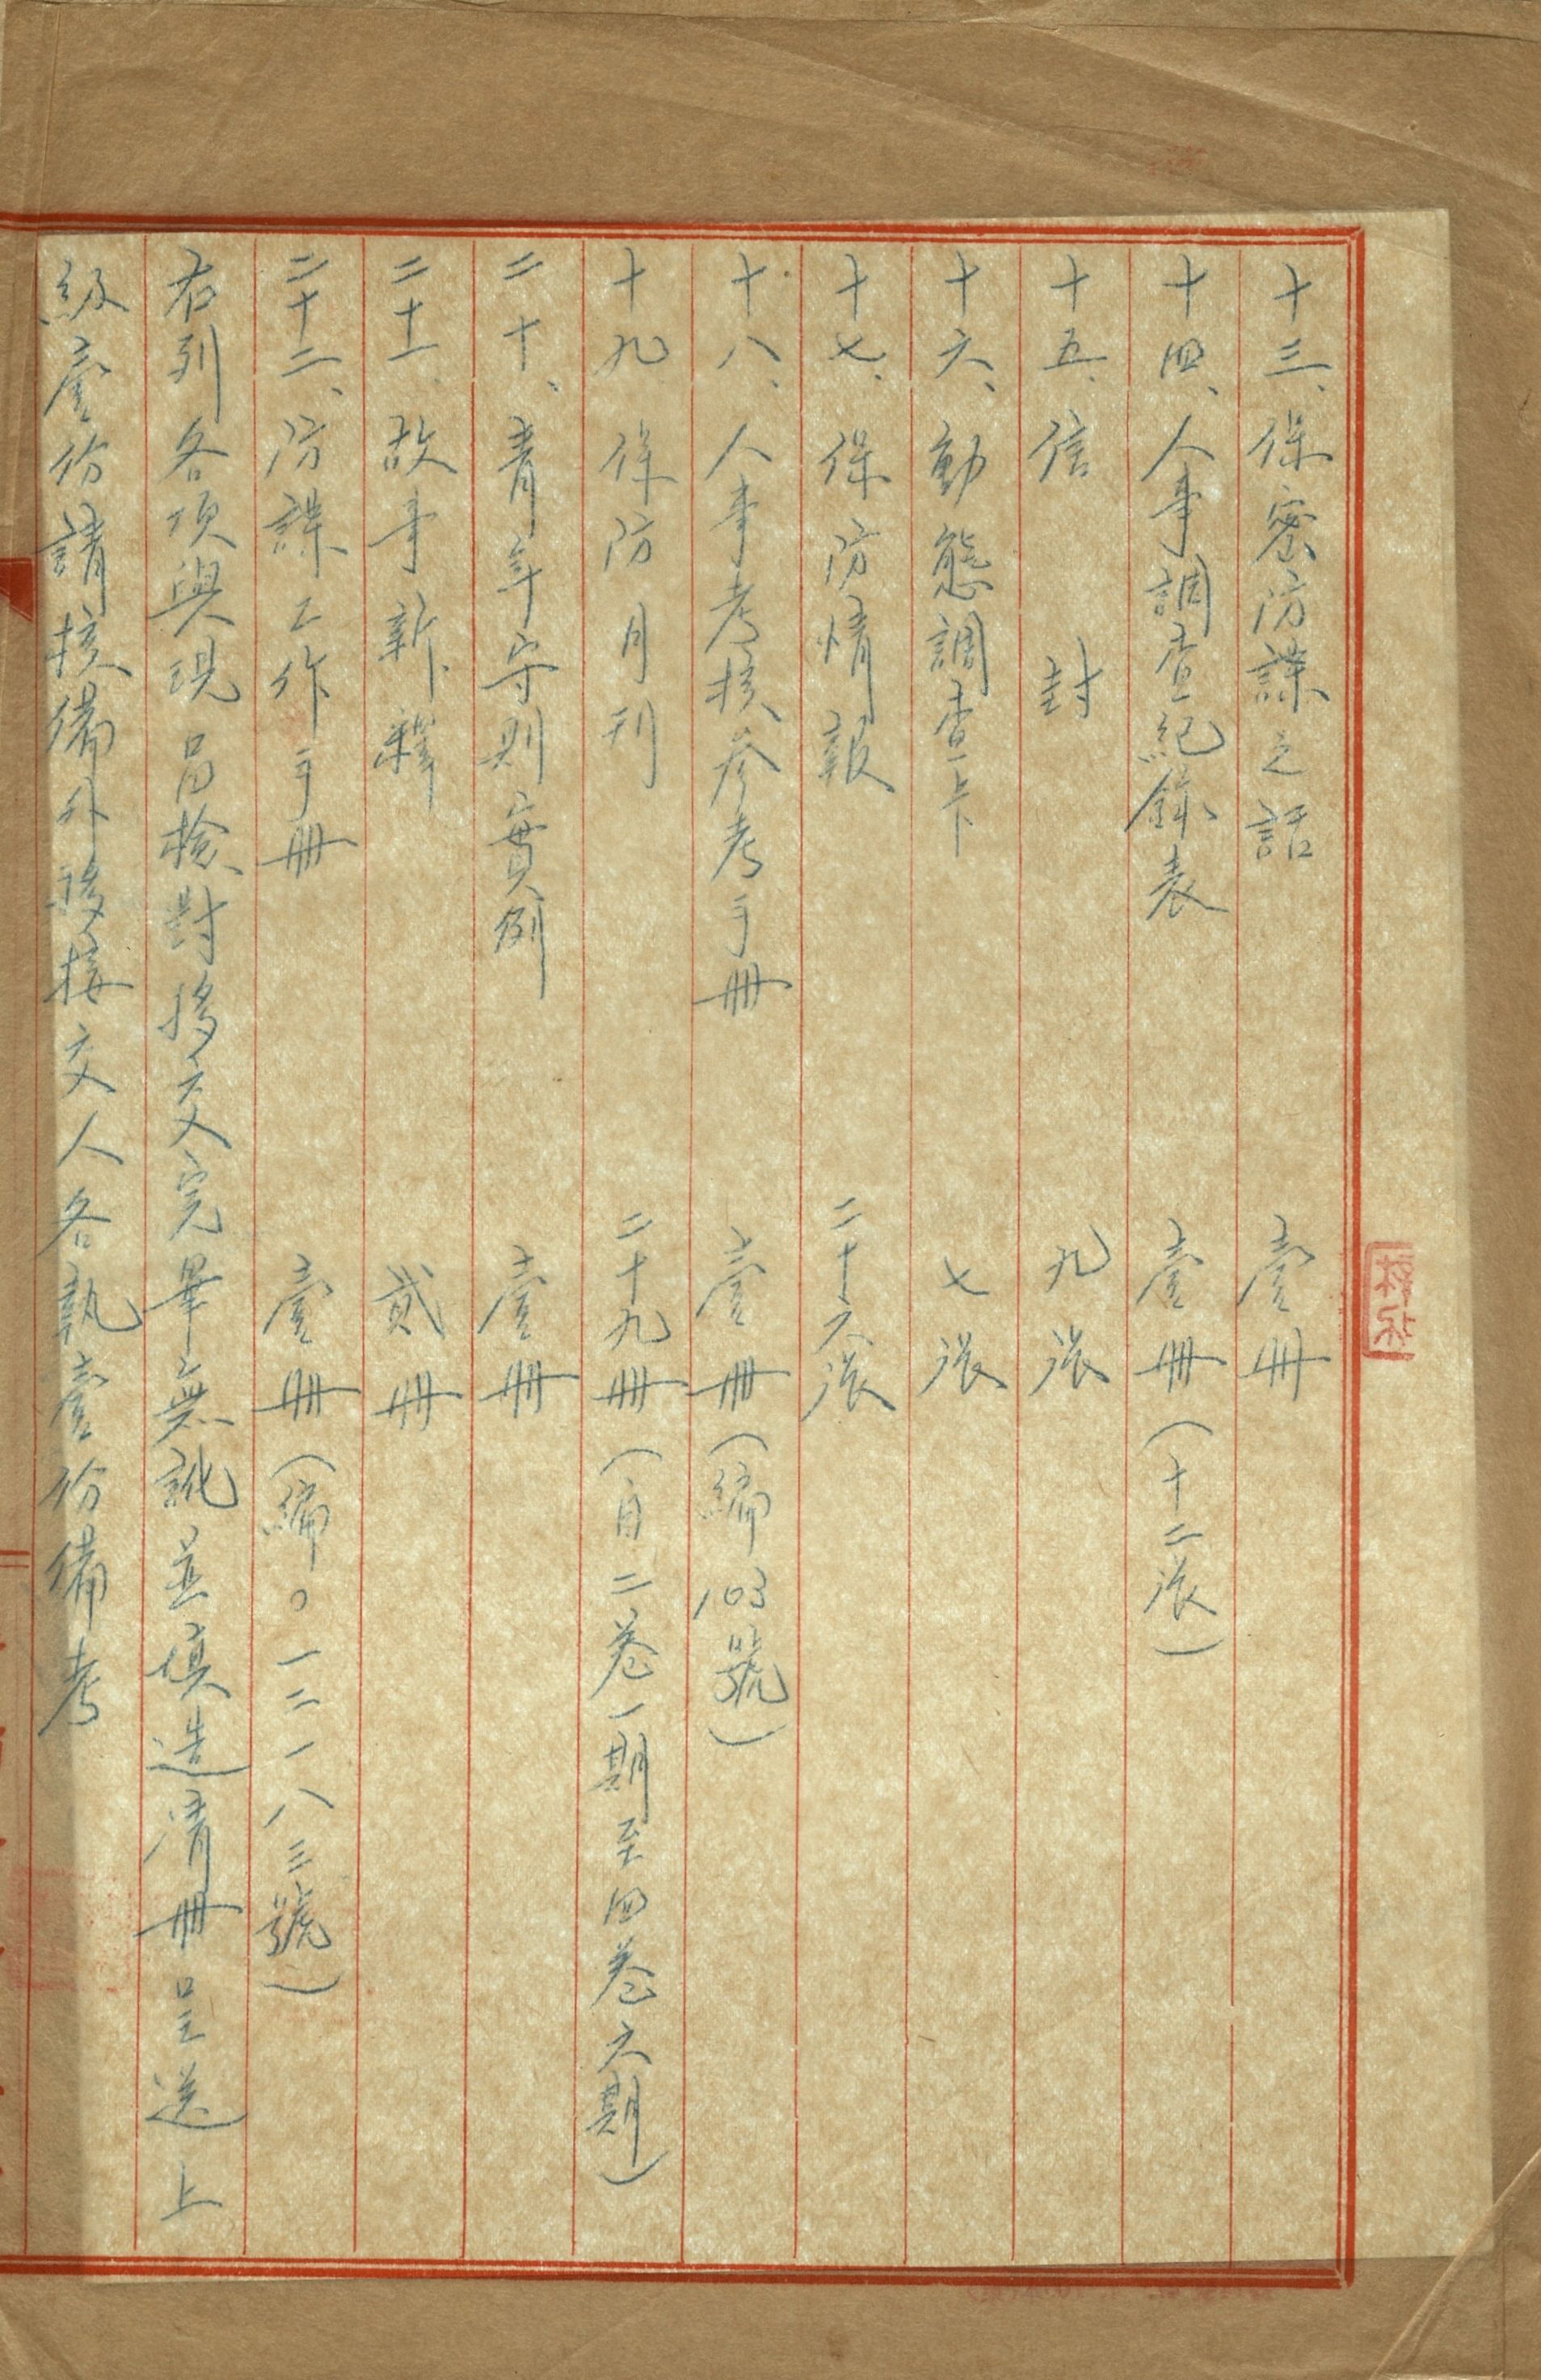 十三、保密防諜之話 壹冊
十四、人事調查紀錄表 壹冊(十二張)
十五、信封 九張
十六、動態調查卡 七張
十七、保防情報 二十六張
十八、人事考核參考手冊 壹冊(編103號)
十九 保防月刊 二十九冊(自二卷一期至四卷六期)
二十、青年守則實例 壹冊
二十一 故事新釋 貳冊
二十二、防諜工作手冊 壹冊(編〇一二一八三號)
右列各項與現品檢對移交完畢無訛並填造清冊呈送上
級壹份請核備外移接交人各執壹份備考